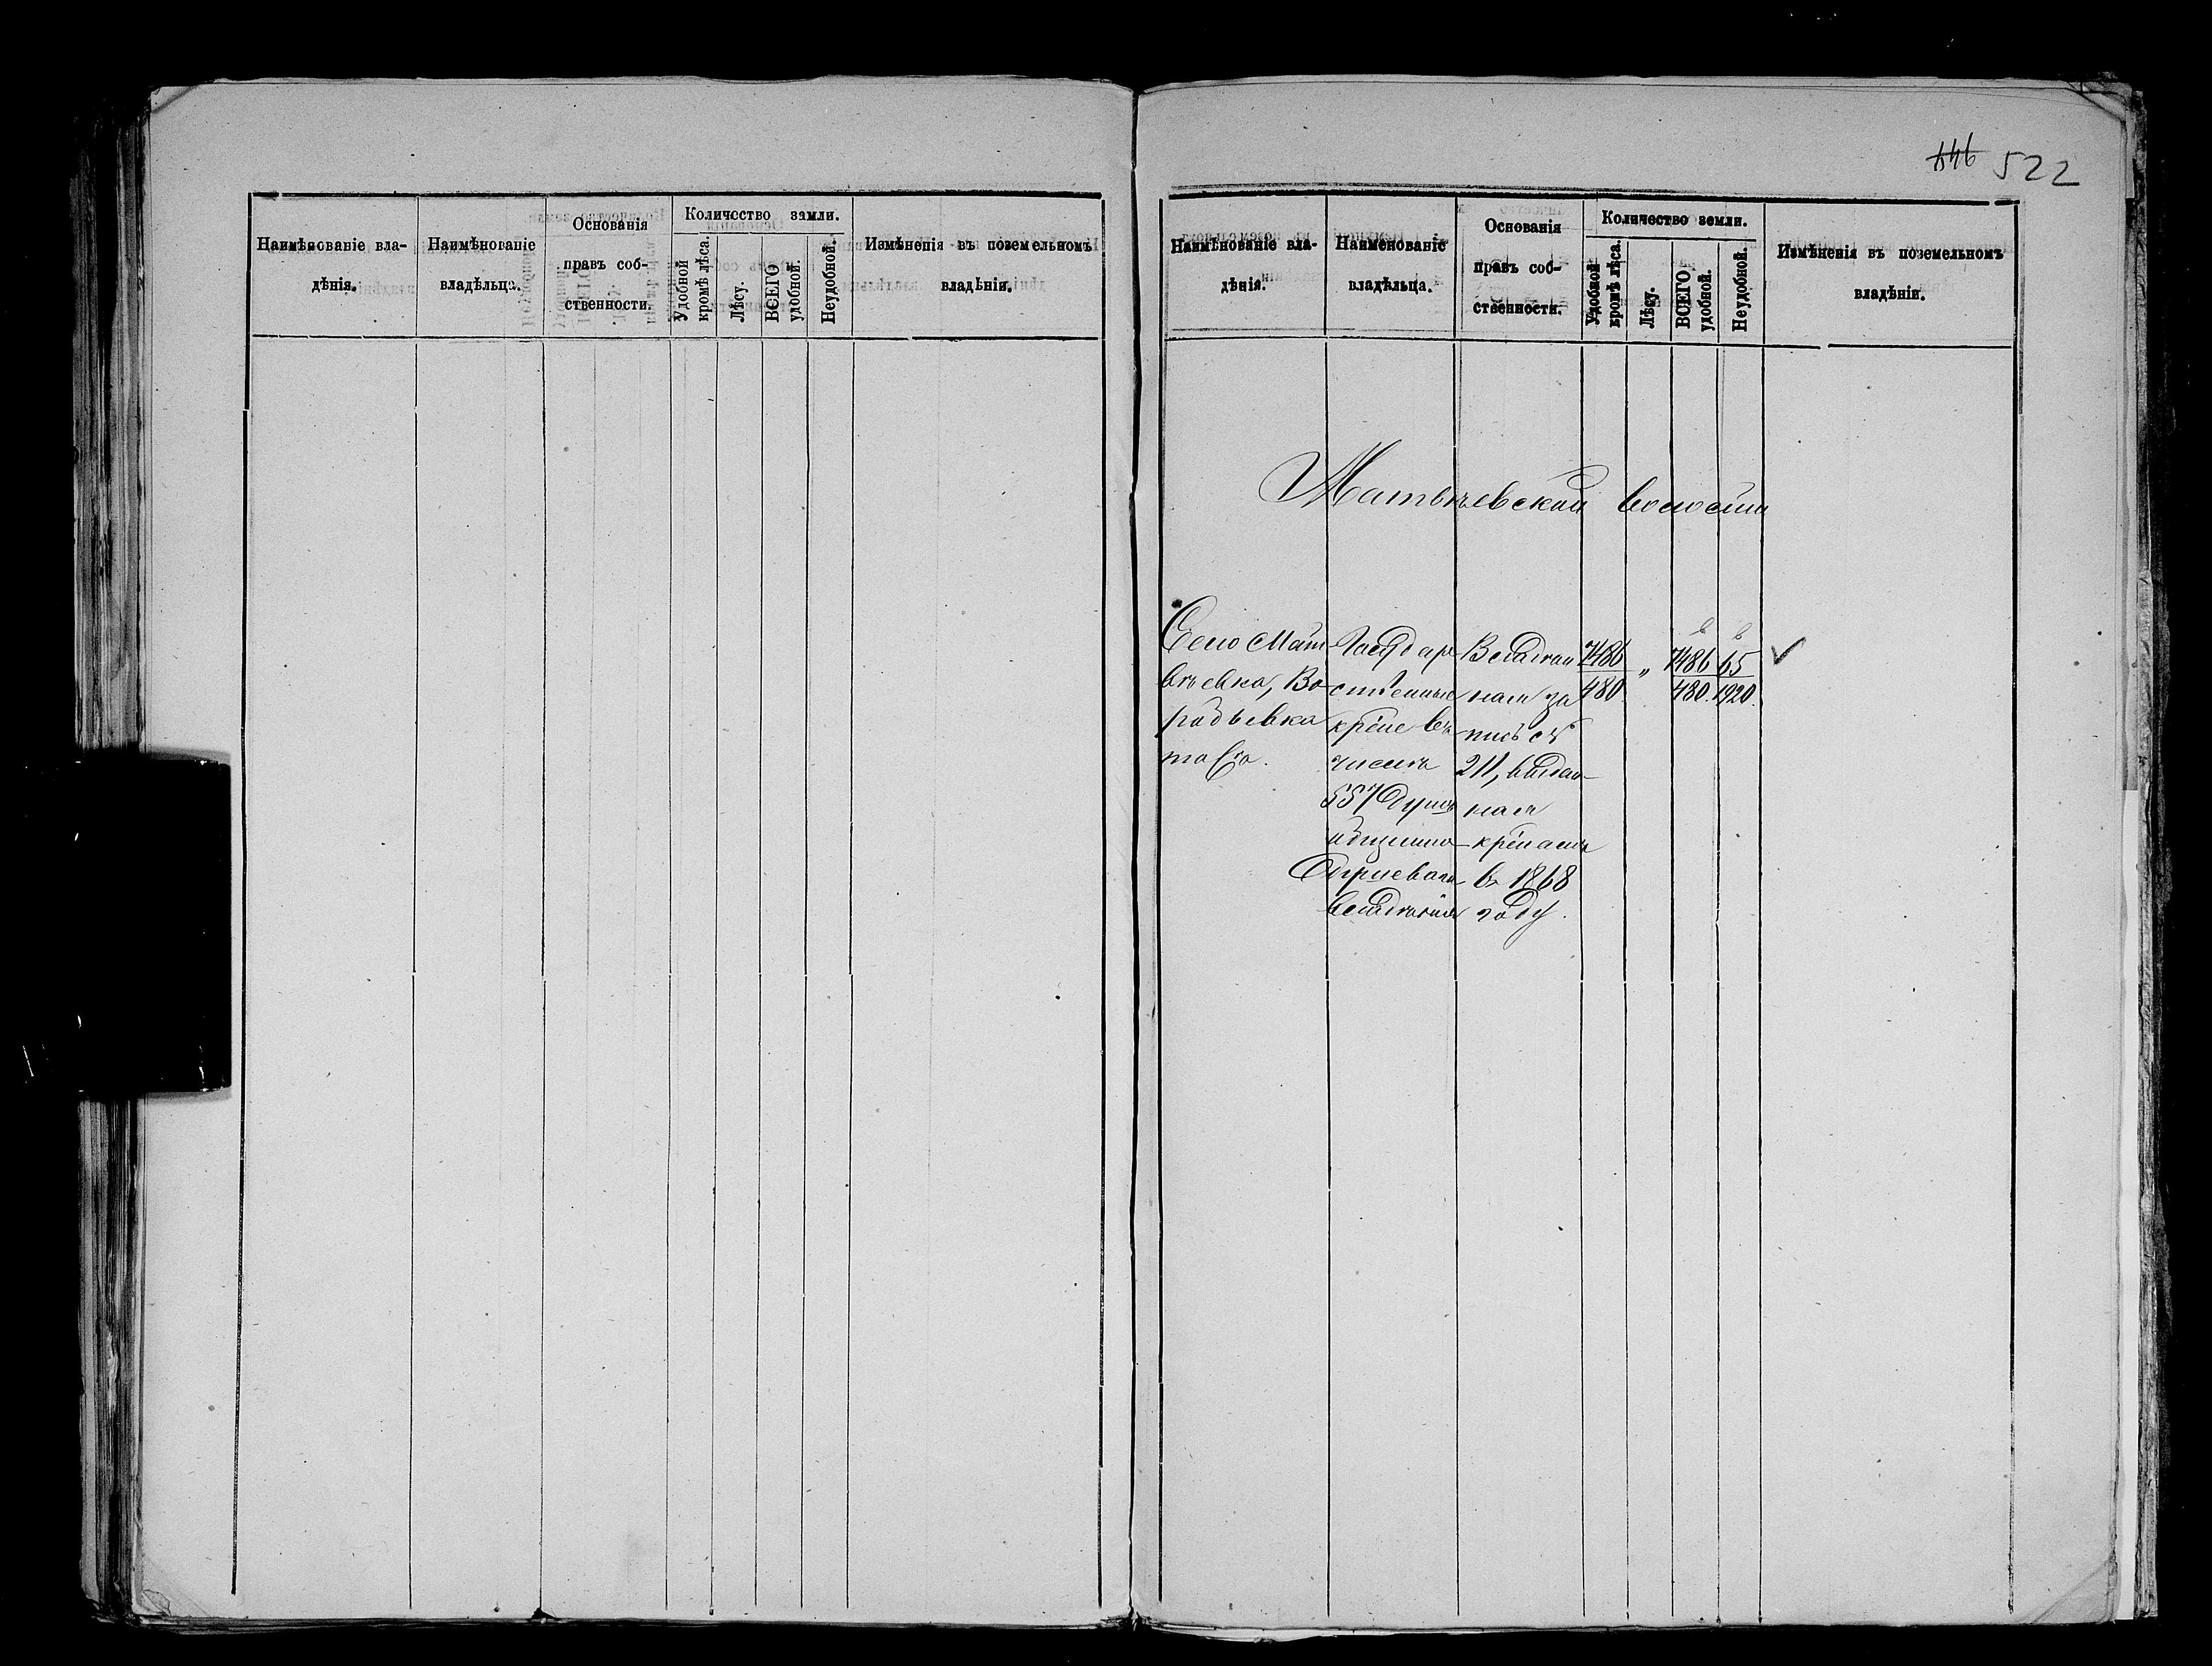 546 522
Наимѣнованіе вла-
дѣнія.
Наимѣнованіе
владѣльца.
Основанія
правъ соб-
ственности.
Количество земли.
Удобной
кромѣ лѣса.
Лѣсу.
ВСЕГО
удобной.
Неудобной.
Измѣненія въ поземельномъ
владѣніи.
Наимѣнованіе вла-
дѣнія.
Наименованіе
владѣльца.
Основанія
правъ соб-
ственности.
Количество земли.
Удобной
кромѣ лѣса.
Лѣсу.
ВСЕГО
удобной.
Неудобной.
Измѣненія въ поземельномъ
владѣніи.
Матвѣевской волости
Село Мат
вѣевка,
тоже.
Государ
ственные
крест. въ
числѣ
557 душъ
общинно
владѣнія
Владѣн
ная за
пись №
211, выдан
ная
крестьян.
въ 1868
году.
7486
480
„
7486
480.
65
1920.